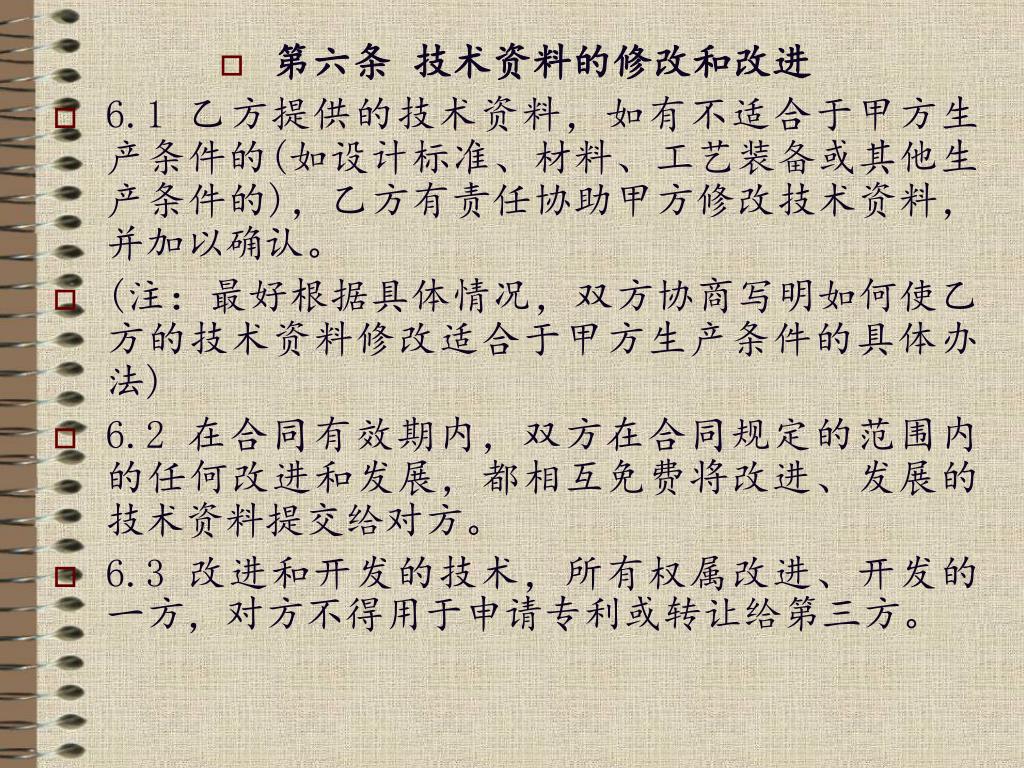 第六条 技术资料的修改和改进
6.1 乙方提供的技术资料，如有不适合于甲方生
产条件的(如设计标准、材料、工艺装备或其他生
产条件的)，乙方有责任协助甲方修改技术资料，
并加以确认。
(注：最好根据具体情况，双方协商写明如何使乙
方的技术资料修改适合于甲方生产条件的具体办
法)
6.2 在合同有效期内，双方在合同规定的范围内
的任何改进和发展，都相互免费将改进、发展的
技术资料提交给对方。
6.3 改进和开发的技术，所有权属改进、开发的
一方，对方不得用于申请专利或转让给第三方。